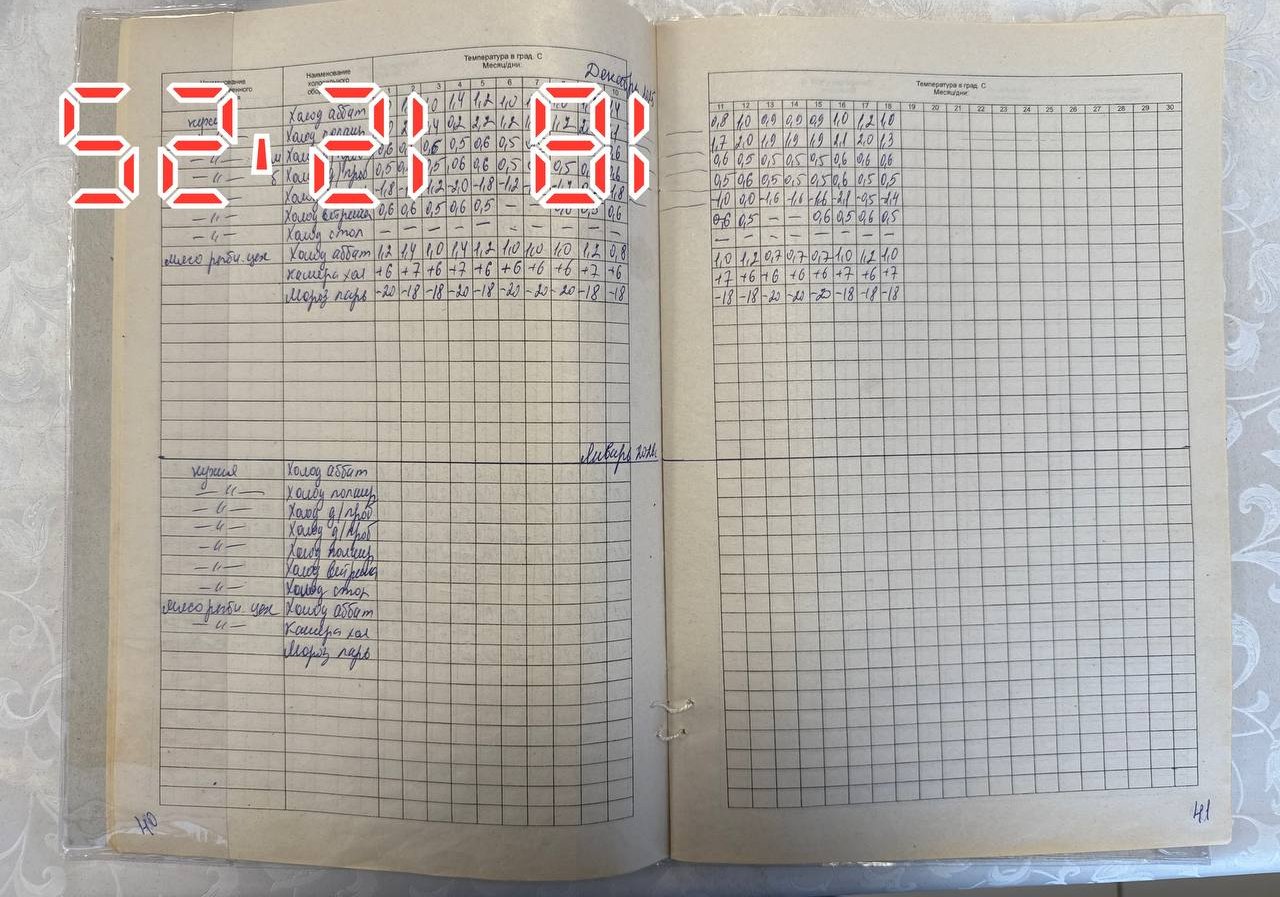 52'21 81
Температура в град. С
Месяц/дни:
Декабрь
Наименование
Наименование
4 5 6 7
10
Холод аббат
1,4 1,2 1,0
Холод полаир
0,2 2,2 1,2
0,5 0,6 0,5
0,5 0,6 0,6 0,5
-1,8 -1,2 -2,0 -1,8 -1,2 -1,8
Холод витрина 0,6 0,6 0,5 0,6 0,5 — 0,6
— " — Холод стол — — — — — — — — — —
мясо рыбн. цех Холод аббат 1,2 1,4 1,0 1,4 1,2 1,0 1,0 1,0 1,2 0,8
камера хол +6 +7 +6 +7 +6 +6 +6 +6 +7 +6
Мороз ларь -20 -18 -18 -20 -18 -20 -20 -20 -18 -18
Январь 2026
кухня Холод аббат
— " — Холод полаир
— " — Холод д/проб
— " — Холод д/проб
— " — Холод полаир
— " — Холод витрина
— " — Холод стол
мясо рыбн. цех Холод аббат
— " — Камера хол
Мороз ларь
40
Температура в град. С
Месяц/дни:
11 12 13 14 15 16 17 18 19 20 21 22 23 24 25 26 27 28 29 30
0,8 1,0 0,9 0,9 0,9 1,0 1,2 1,0
1,7 2,0 1,9 1,9 1,9 2,1 2,0 1,3
0,6 0,5 0,5 0,5 0,5 0,6 0,6 0,6
0,5 0,6 0,5 0,5 0,5 0,6 0,5 0,5
-1,0 0,0 -1,6 -1,6 -1,6 -2,1 -0,5 -2,4
0,6 0,5 — — 0,6 0,5 0,6 0,5
— — — — — — — —
1,0 1,2 0,7 0,7 0,7 1,0 1,2 1,0
+7 +6 +6 +6 +6 +7 +6 +7
-18 -18 -20 -20 -20 -18 -18 -18
41